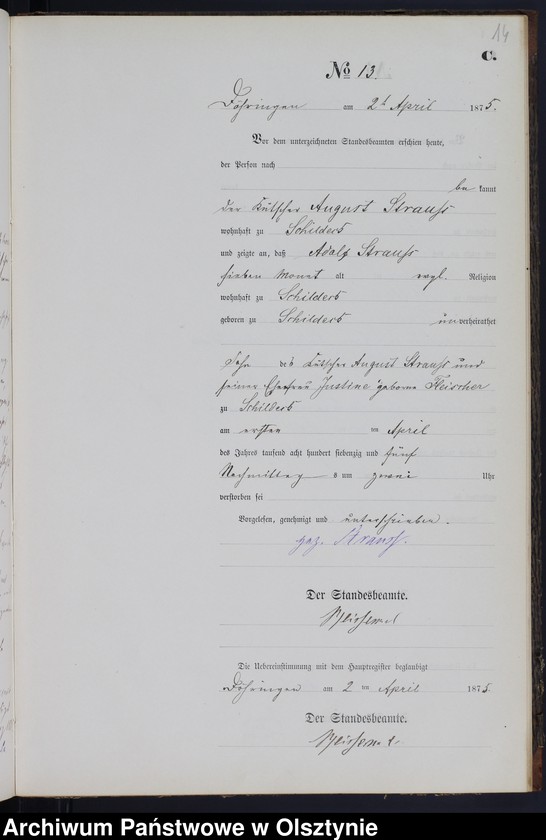 14
C.
No 13.
Döhringen am 2t April 1875.
Vor dem unterzeichneten Standesbeamten erschien heute,
der Person nach
be kannt
der Kutscher August Strauss
wohnhaft zu Schildeck
und zeigte an, daß Adolf Strauss
sieben Monat alt evgl. Religion
wohnhaft zu Schildeck
geboren zu Schildeck unverheirathet
Sohn des Kutscher August Strauss und
seiner Ehefrau Justine geborne Fleischer
zu Schildeck
am ersten April
des Jahres tausend acht hundert siebenzig und fünf
Nachmittag s um zwei Uhr
verstorben sei
Vorgelesen, genehmigt und unterschrieben.
gez. Strauss.
Der Standesbeamte.
Die Uebereinstimmung mit dem Hauptregister beglaubigt
Döhringen am 2 ten April 1875.
Der Standesbeamte.
Archiwum Państwowe w Olsztynie